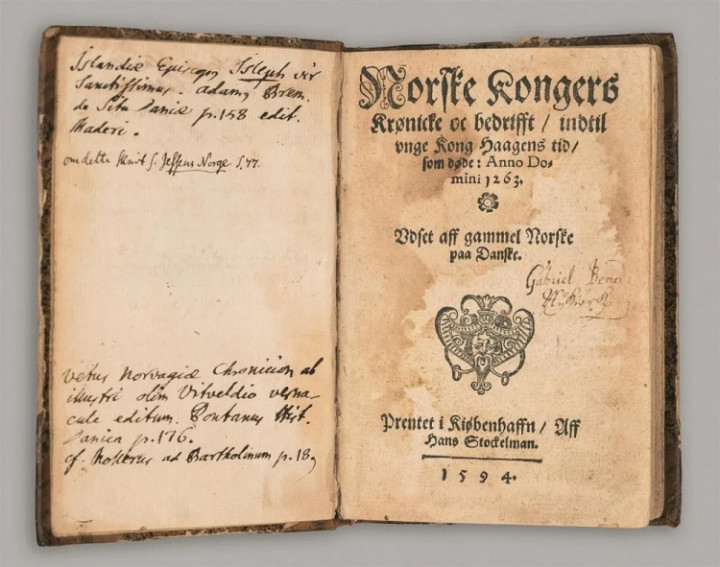 Islandiæ Episcopus Isleph vir
Sanctissimus. Adam, Brem.
de Situ Daniæ p. 158 edit.
Maderi.
om dette skrift s. Jessens Norge S. 77.
vetus Norvagiæ Chronicion ab
illustri olim Vitveldio verna-
cule editum. Pontanus Hist.
Danica p. 176.
cf. Mollerus ad Bartholinum p. 18
Norske Kongers
Krønicke oc bedrifft / indtil
vnge Kong Haagens tid /
som døde: Anno Do-
mini 1263.
Vdset aff gammel Norske
paa Danske.
Gabriel
Prentet i Kiøbenhaffn / Aff
Hans Stockelman.
1 5 9 4.